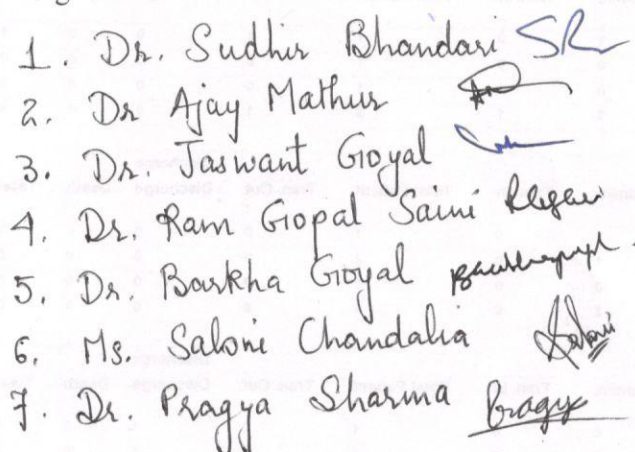 1. Dr. Sudhir Bhandari
2. Dr Ajay Mathur
3. Dr. Jaswant Goyal
4. Dr. Ram Gopal Saini
5. Dr. Barkha Goyal
6. Ms. Saloni Chandalia Saloni
7. Dr. Pragya Sharma Pragya